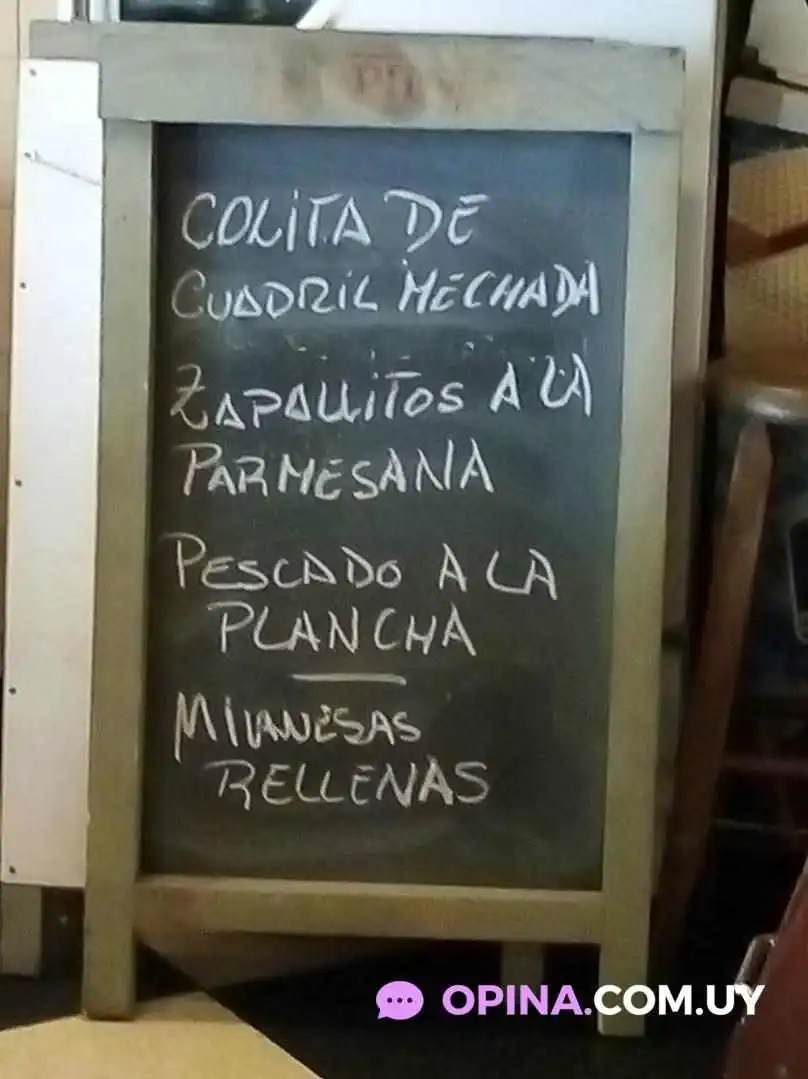 COLITA DE
CUADRIL MECHADA
ZAPALLITOS A LA
PARMESANA
PESCADO A LA
PLANCHA
MILANESAS
RELLENAS
OPINA.COM.UY